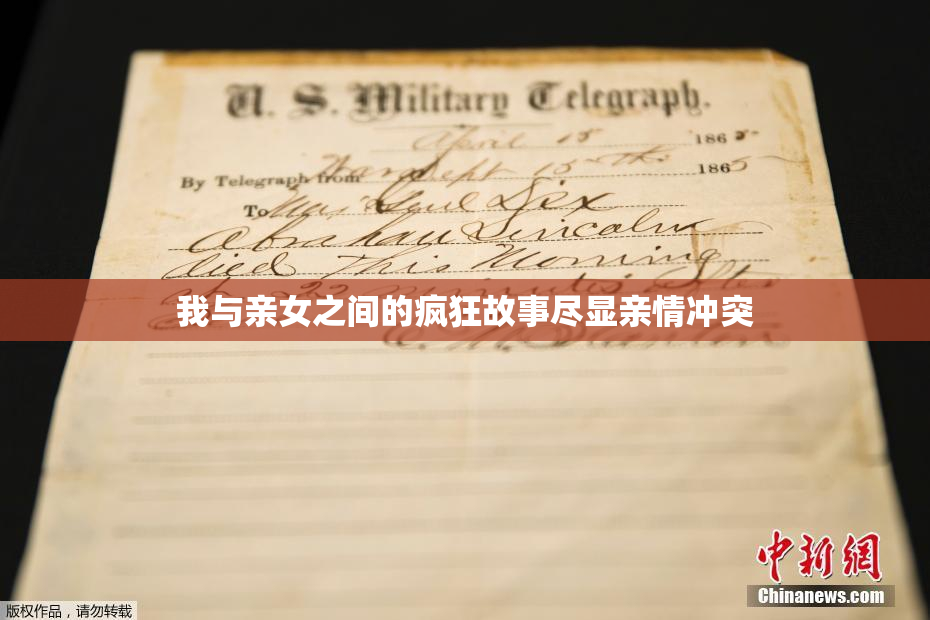 U. S. Military Telegraph.
April 15 1865
By Telegraph from War Dept 15th 1865
To Maj Genl Dix
Abraham Lincoln
died This Morning
at 22 minutes after
我与亲女之间的疯狂故事尽显亲情冲突
E. M. Stanton
中新网
Chinanews.com
版权作品，请勿转载